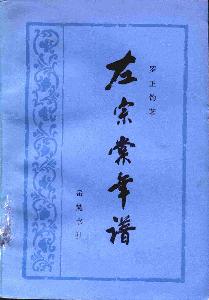 左宗棠年谱
罗正钧著
岳麓书社